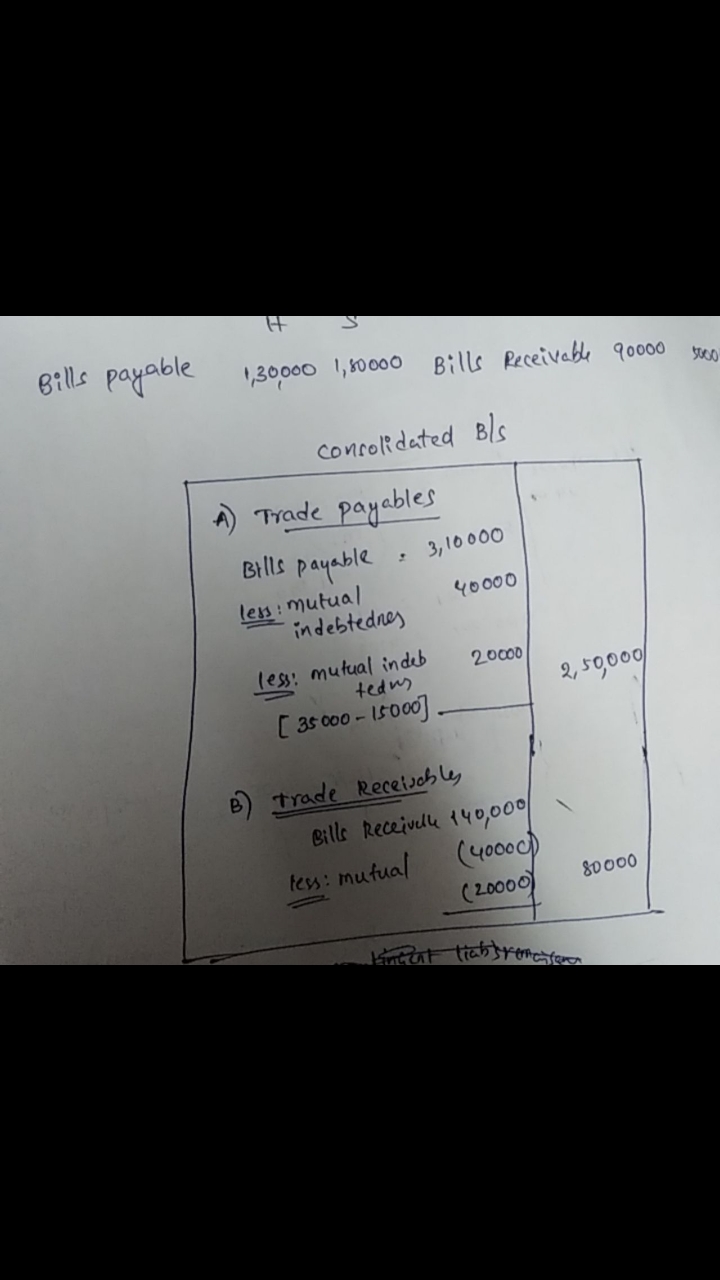 H S
Bills payable 1,30,000 1,80000 Bills Receivable 90000
Consolidated B/s
A) Trade payables
Bills payable = 3,10000
less: mutual 40000
indebtednes
less: mutual indeb 20000 2,50,000
tedns
[35000-15000]
B) Trade Receivables
Bills Receivable 140,000
(40000)
less: mutual 80000
(20000)